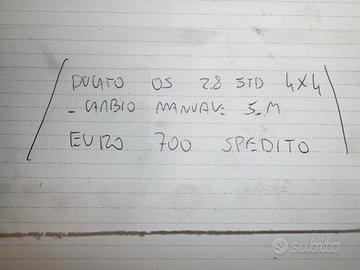 DUCATO OS 2.8 STD 4X4
- CAMBIO MANUALE 5.M
EURO 700 SPEDITO
subito